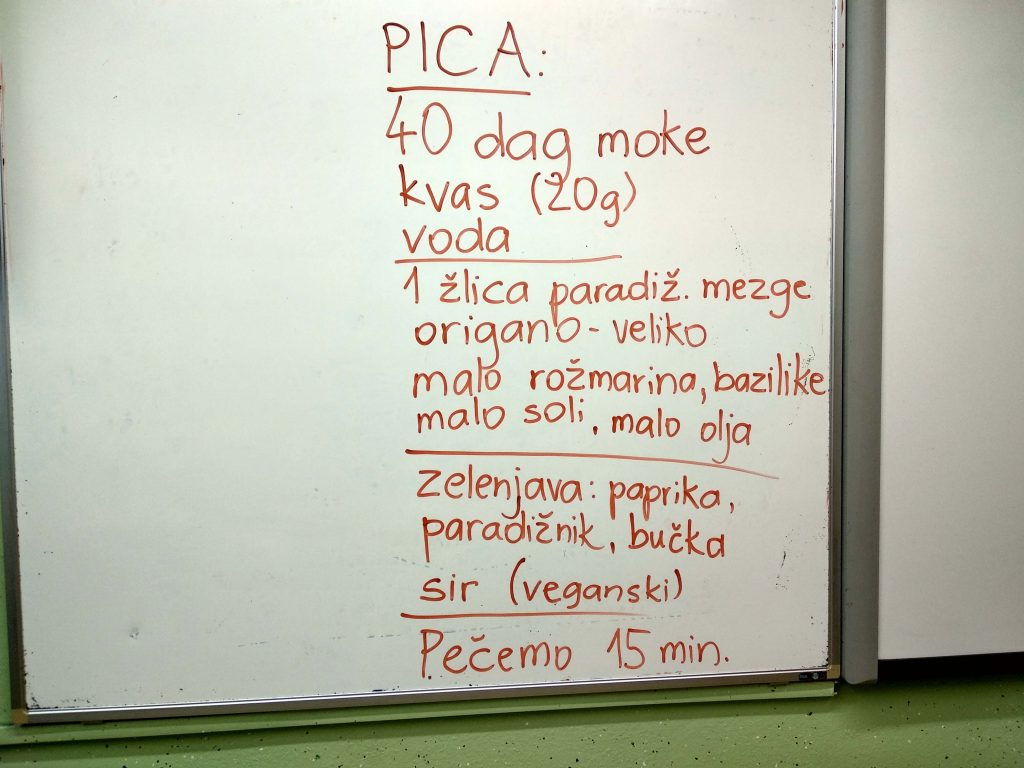 PICA:
40 dag moke
kvas (20g)
voda
1 žlica paradiž. mezge
origano - veliko
malo rožmarina, bazilike
malo soli, malo olja
zelenjava: paprika,
paradižnik, bučka
sir (veganski)
Pečemo 15 min.